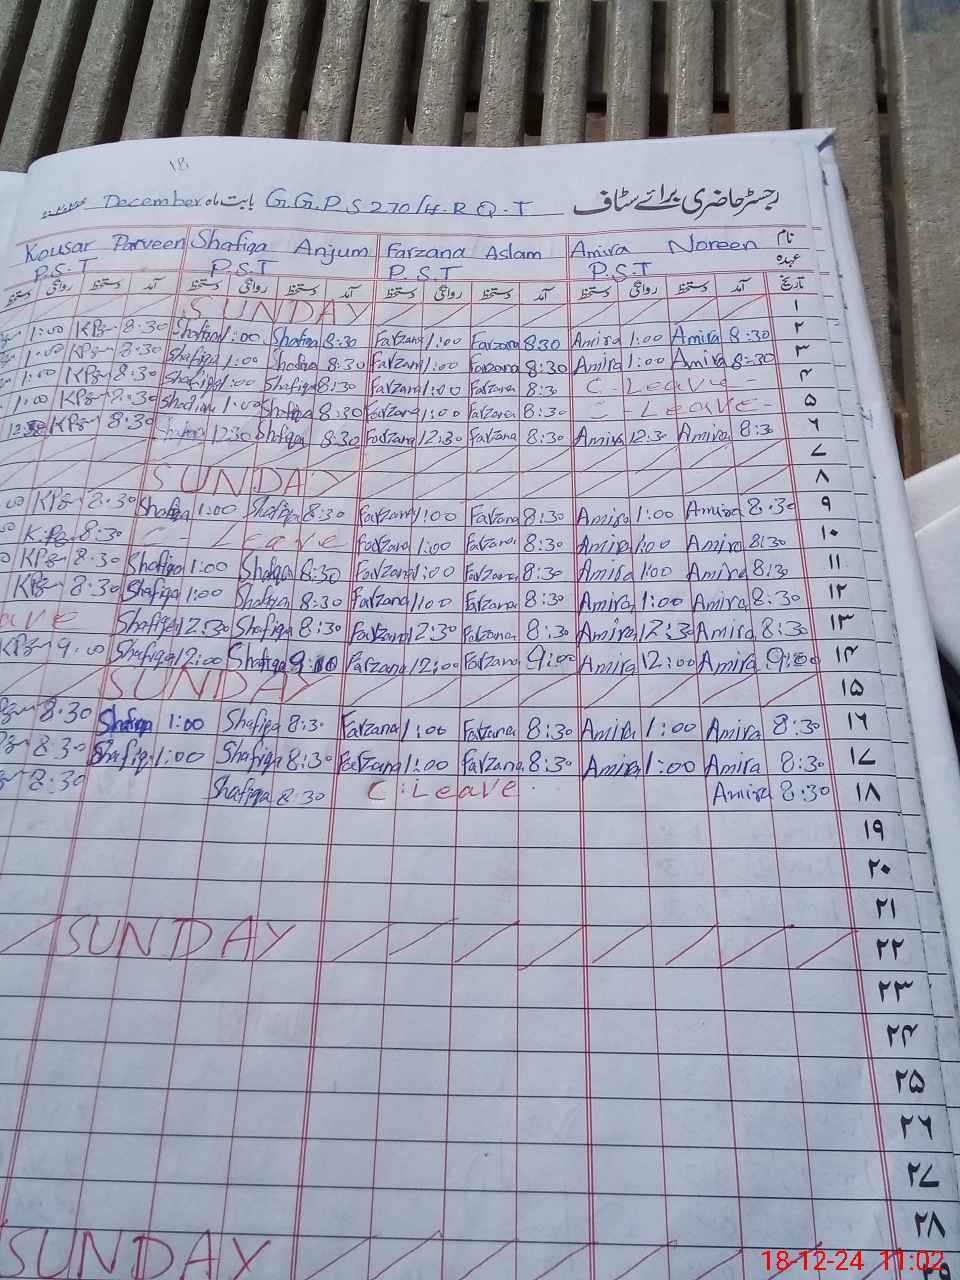 18
رجسٹر حاضری برائے سٹاف G.G.P.S 270/H.R Q.T بابت ماہ December
نام Amira Noreen Farzana Aslam Shafiqa Anjum Kousar Parveen
عہدہ P.S.T P.S.T P.S.T P.S.T
تاریخ آمد دستخط روانگی دستخط آمد دستخط روانگی دستخط آمد دستخط روانگی دستخط آمد دستخط روانگی
۱ SUNDAY
۲ 8:30 Amira 1:00 Amira 8:30 Farzana 1:00 Farzana 8:30 Shafiqa 1:00 Shafiqa 8:30 KPz 1:00
۳ 8:30 Amira 1:00 Amira 8:30 Farzana 1:00 Farzana 8:30 Shafiqa 1:00 Shafiqa 8:30 KPz 1:00
۴ C-Leave- 8:30 Farzana 1:00 Farzana 8:30 Shafiqa 1:00 Shafiqa 8:30 KPz 1:00
۵ C-Leave- 8:30 Farzana 1:00 Farzana 8:30 Shafiqa 1:00 Shafiqa 8:30 KPz 1:00
۶ 8:30 Amira 12:30 Amira 8:30 Farzana 12:30 Farzana 8:30 Shafiqa 12:30 Shafiqa 8:30 KPz 12:30
۷
۸ SUNDAY
۹ 8:30 Amira 1:00 Amira 8:30 Farzana 1:00 Farzana 8:30 Shafiqa 1:00 Shafiqa 8:30 KPz
۱۰ 8:30 Amira 1:00 Amira 8:30 Farzana 1:00 Farzana C-Leave 8:30 K.Pz
۱۱ 8:30 Amira 1:00 Amira 8:30 Farzana 1:00 Farzana 8:30 Shafiqa 1:00 Shafiqa 8:30 KPz
۱۲ 8:30 Amira 1:00 Amira 8:30 Farzana 1:00 Farzana 8:30 Shafiqa 1:00 Shafiqa 8:30 KPz
۱۳ 8:30 Amira 12:30 Amira 8:30 Farzana 12:30 Farzana 8:30 Shafiqa 12:30 Shafiqa ave
۱۴ 9:00 Amira 12:00 Amira 9:00 Farzana 12:00 Farzana 9:00 Shafiqa 12:00 Shafiqa 9:00 KPz
۱۵ SUNDAY
۱۶ 8:30 Amira 1:00 Amira 8:30 Farzana 1:00 Farzana 8:30 Shafiqa 1:00 Shafiqa 8:30
۱۷ 8:30 Amira 1:00 Amira 8:30 Farzana 1:00 Farzana 8:30 Shafiqa 1:00 Shafiqa 8:30
۱۸ 8:30 Amira C.Leave 8:30 Shafiqa 8:30
۱۹
۲۰
۲۱
۲۲ SUNDAY
۲۳
۲۴
۲۵
۲۶
۲۷
۲۸
۲۹ SUNDAY
18-12-24 11:02